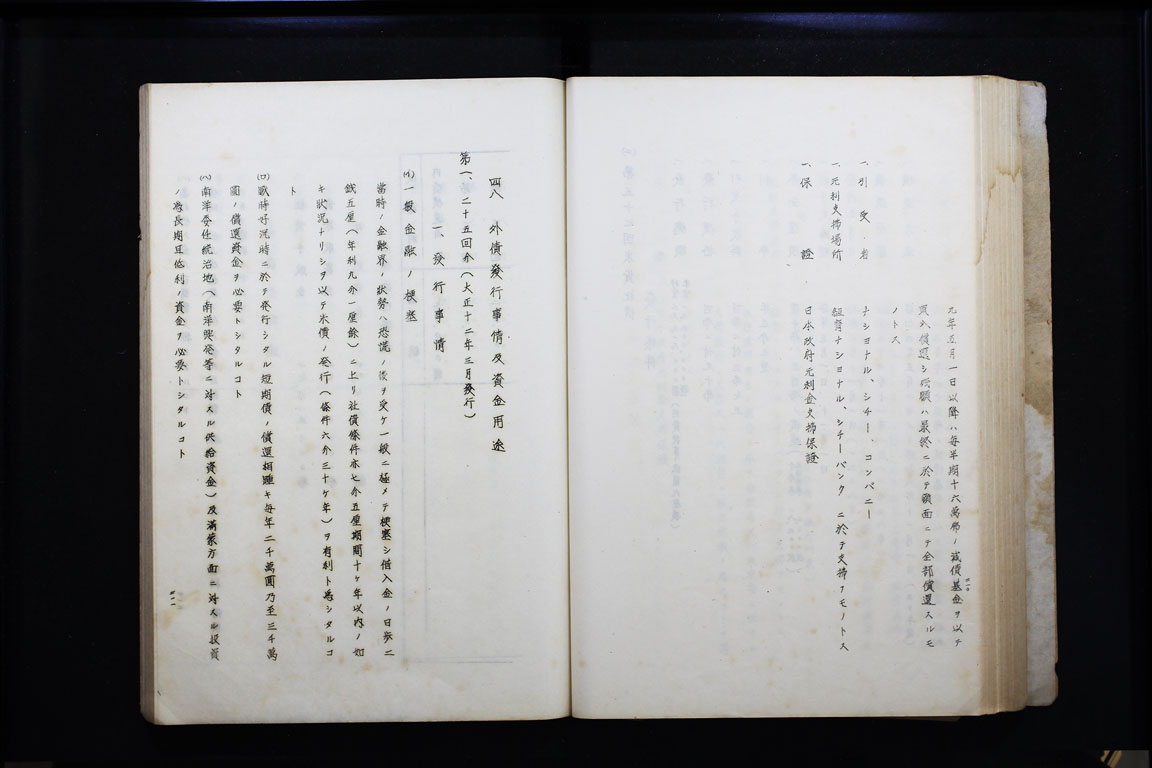 九年五月一日以降ハ毎半期十六萬弗ノ減債基金ヲ以テ
買入償還シ殘額ハ最終ニ於テ額面ニテ全部償還スルモ
ノトス
一、引受者 ナショナル、シチー、コンパニー
一、元利支拂場所 紐育ナショナル、シチーバンクニ於テ支拂フモノトス
一、保證 日本政府元利金支拂保證
四八 外債發行事情及資金用途
第一、二十五回分(大正十二年三月發行)
一、發行事情
(イ)一般金融ノ梗塞
當時ノ金融界ノ狀勢ハ恐慌ノ後ヲ受ケ一般ニ極メテ梗塞シ借入金ノ日歩二
錢五厘(年利九分一厘餘)ニ上リ社債條件亦七分五厘期間十ケ年以内ノ如
キ狀況ナリシヲ以テ米債ノ発行(條件六分三十ケ年)ヲ有利ト爲シタルコ
ト
(ロ)戰時好況時ニ於テ発行シタル短期債ノ償還相踵キ毎年二千萬圓乃至三千萬
圓ノ償還資金ヲ必要トシタルコト
(ハ)南洋委任統治地(南洋興発等ニ対スル供給資金)及滿蒙方面ニ対スル投資
ノ爲長期且低利ノ資金ヲ必要トシタルコト